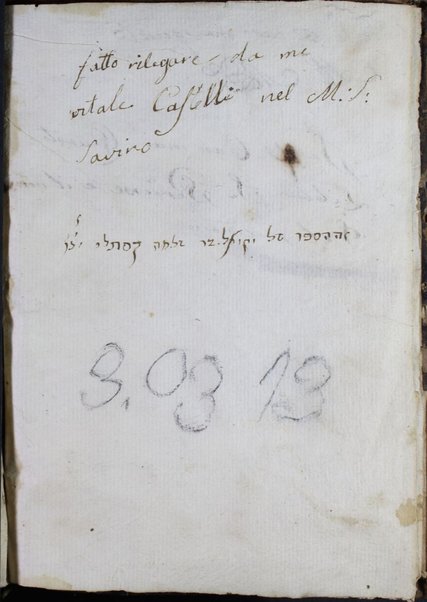 fatto rilegare da me
vitale Castelli nel M: S:
Savino
זההספר של יקותיאל בר שלמה קסתלי יצ״ו
3.03 13